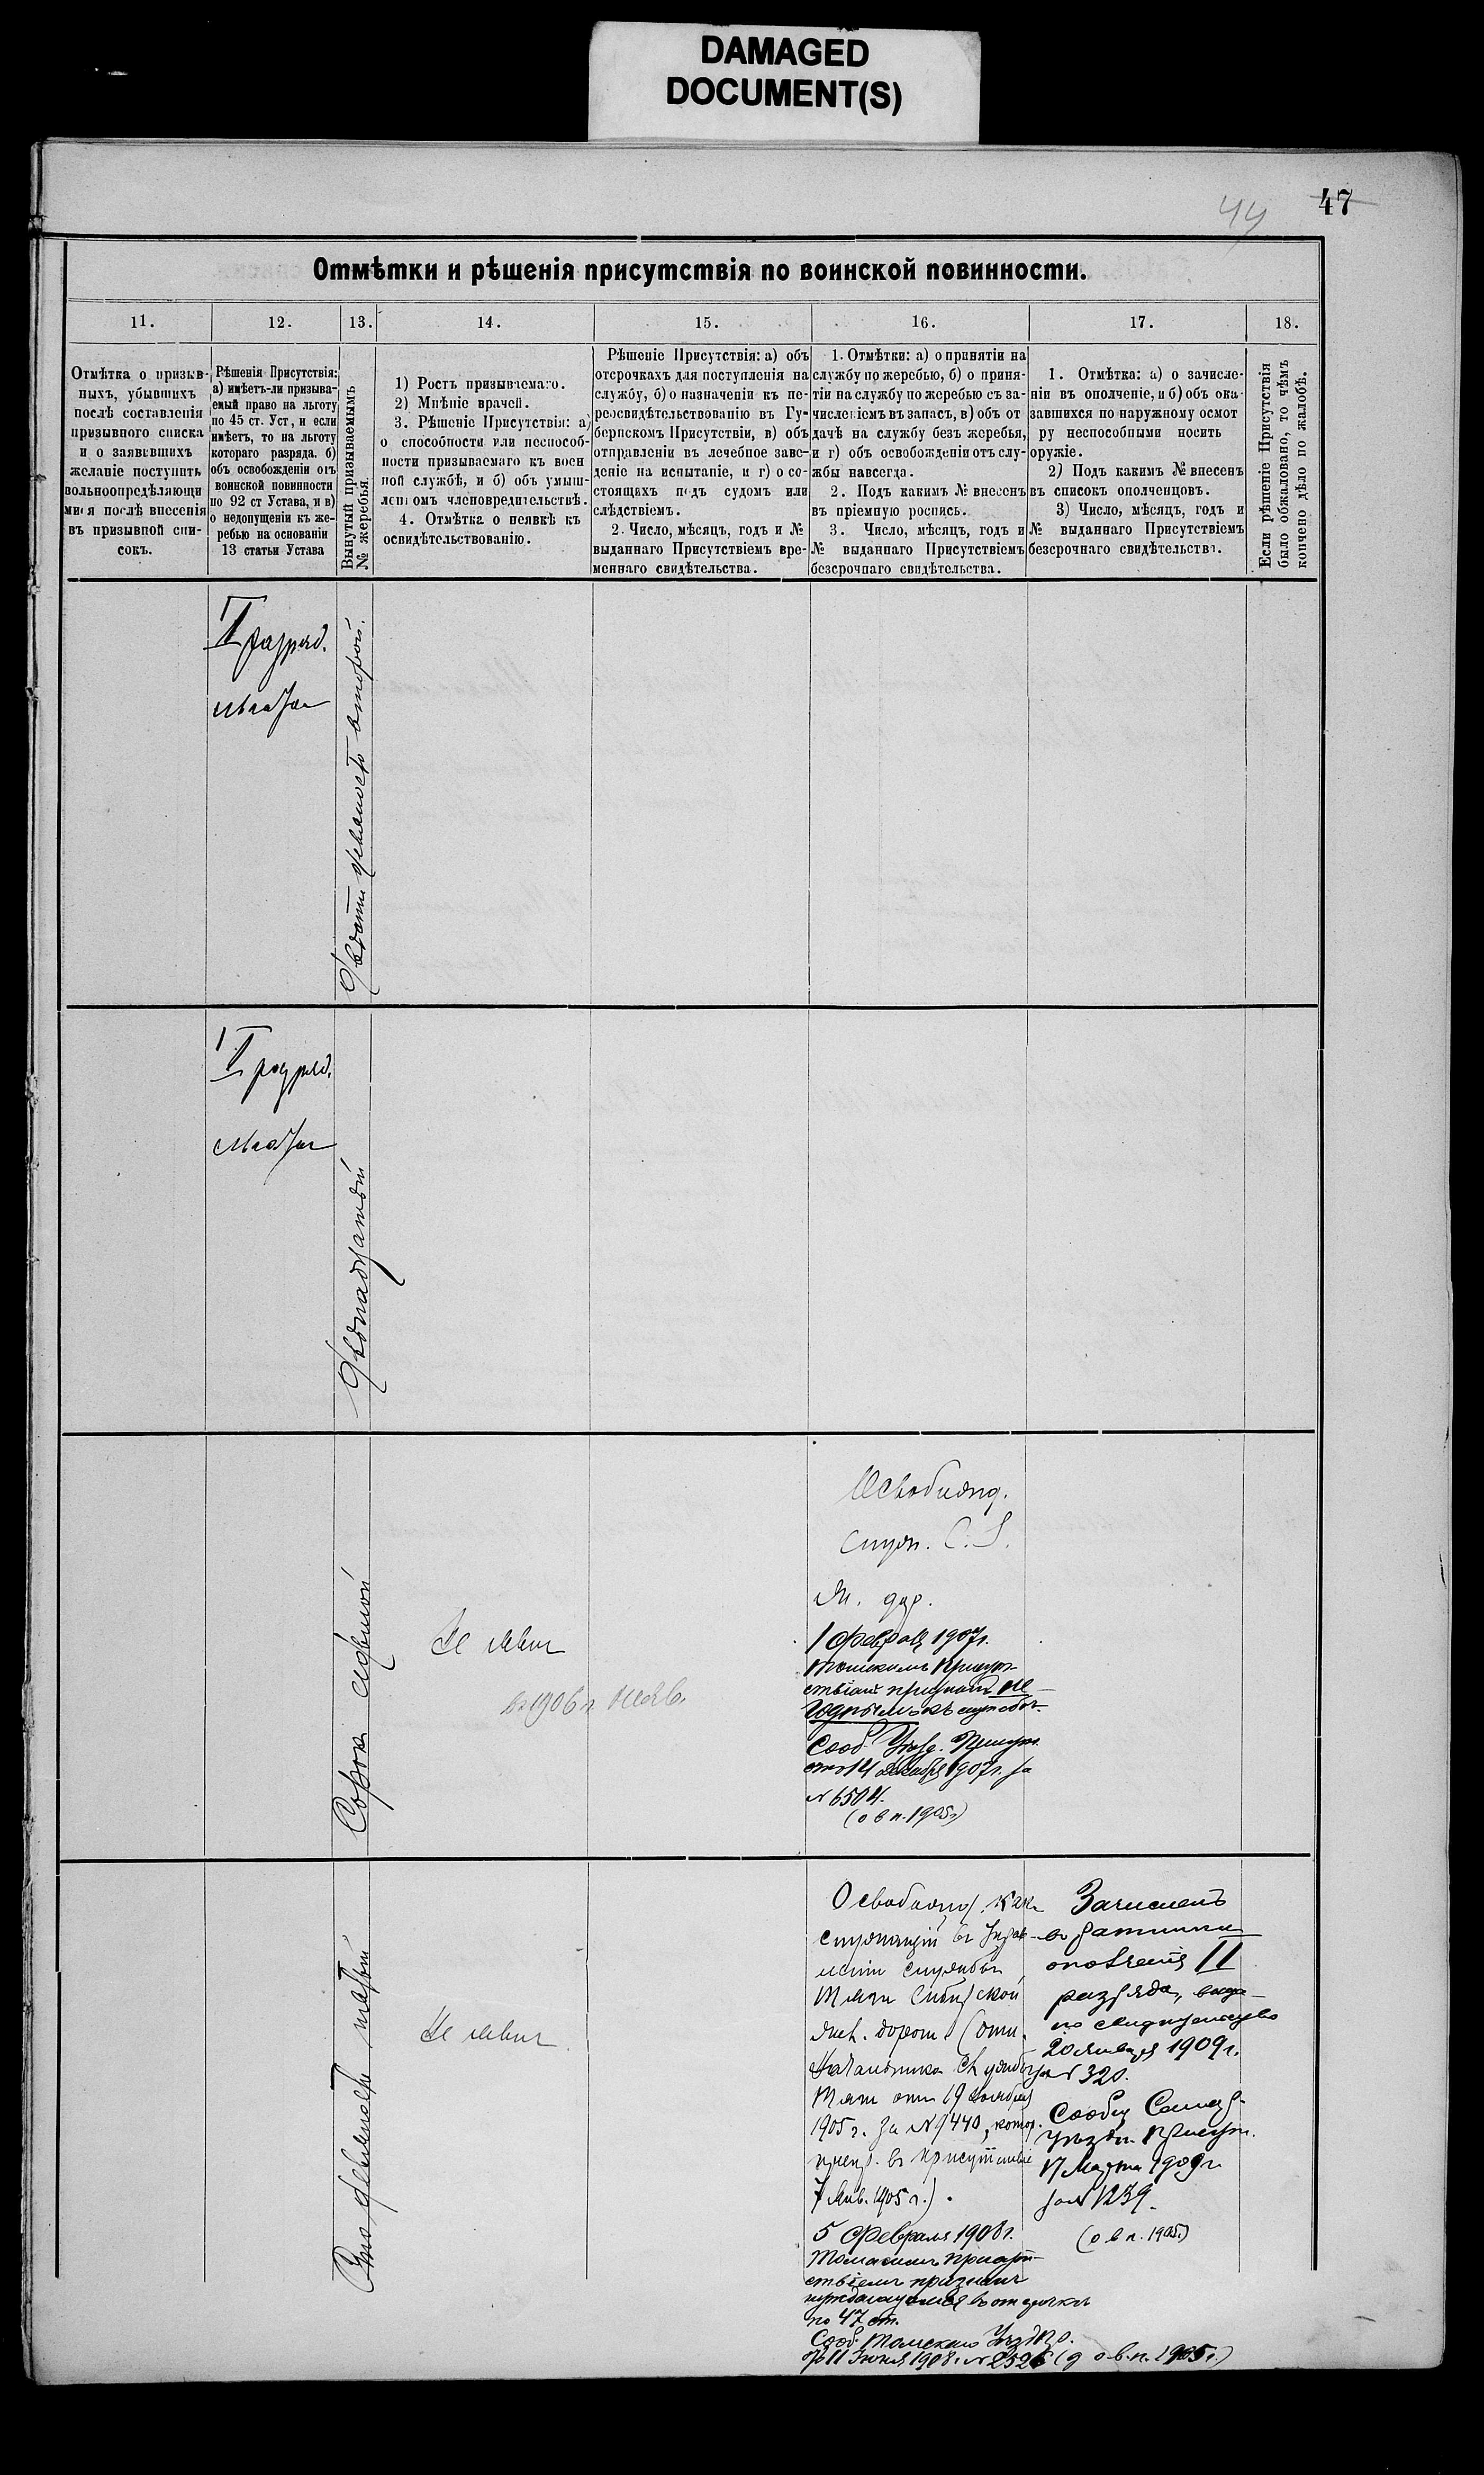 DAMAGED
DOCUMENT(S)
44
47
Отмѣтки и рѣшенія присутствія по воинской повинности.
11.
12.
13.
14.
15.
16.
17.
18.
Отмѣтка о призыв-
ныхъ, убывшихъ
послѣ составленія
призывного списка
и о заявевшихъ
желаніе поступить
вольноопредѣляющи
мися послѣ внесенія
въ призывной спи-
сокъ.
Рѣшенія Присутствія:
а) имѣетъ-ли призыва-
емый право на льготу
по 45 ст. Уст, и если
имѣетъ, то на льготу
котораго разряда. б)
объ освобожденіи отъ
воинской повинности
по 92 ст Устава, и в)
о недопущеніи къ же-
ребью на основаніи
13 статьи Устава
Вынутый призываемымъ
№ жеребья.
1) Ростъ призываемаго.
2) Мнѣніе врачей.
3. Рѣшеніе Присутствія: а)
о способности или неспособ-
ности призываемаго къ воен
ной службѣ, и б) объ умыш-
леномъ членовредительствѣ.
4. Отмѣтка о неявкѣ къ
освидѣтельствованію.
Рѣшеніе Присутствія: а) объ
отсрочкахъ для поступленія на
службу, б) о назначеніи къ пе-
реосвидѣтельствованію въ Гу-
бернскомъ Присутствіи, в) объ
отправленіи въ лечебное заве-
деніе на испытаніе, и г) о со-
стоящахъ подъ судомъ или
слѣдствіемъ.
2. Число, мѣсяцъ, годъ и №
выданнаго Присутствіемъ вре-
меннаго свидѣтельства.
1. Отмѣтки: а) о принятіи на
службу по жеребью, б) о приня-
тіи на службу по жеребью съ за-
численіемъ въ запасъ, в) объ от
дачѣ на службу безъ жеребья,
и г) объ освобожденіи отъ слу-
жбы навсегда.
2. Подъ какимъ № внесенъ
въ пріемную роспись.
3. Число, мѣсяцъ, годъ и
№ выданнаго Присутствіемъ
безсрочнаго свидѣтельства.
1. Отмѣтка: а) о зачисле-
ніи въ ополченіе, и б) объ ока
завшихся по наружному осмот
ру неспособными носить
оружіе.
2) Подъ какимъ № внесенъ
въ списокъ ополченцовъ.
3) Число, мѣсяцъ, годъ и
№ выданнаго Присутствіемъ
безсрочнаго свидѣтельства.
Если рѣшеніе Присутствія
было обжаловано, то чѣмъ
кончено дѣло по жалобѣ.
I разряд.
Двѣсти девяносто второй.
I разряд.
Двѣнадцатый
Сорок седьмой
Не явил
въ 1906 г. неяв.
1 февраля 1907 г.
Томскимъ Присут-
ствіемъ признанъ не-
годнымъ къ службѣ.
Сооб. Уѣзд. Присут.
от 14 декабря 1907 г. за
№ 6504.
(о в п. 1905 г.)
Сто девяносто пятый
Не явил
Освобожд. как
служащій въ Управ-
леніи службы
Тяги Сибирской
жел. дороги (отн.
Начальника Службы
Тяги от 19 ноября
1905 г. за № 9440, котор.
в присутствіе
7 Янв. 1905 г.).
5 февраля 1908 г.
Томскимъ Присут-
ствіемъ признанъ
нуждающимся въ отсрочкѣ
по 47 ст.
Сооб. Томскаго
11 Іюня 1908 г. № 2526 (о в. п. 1905 г.)
Зачисленъ
въ ратники
ополченія II
разряда, выда-
но свидѣтельство
20 января 1909 г.
за № 320.
Сообщ
Уѣздн. Присут.
17 Марта 1909 г.
за № 1239.
(о в п. 1905.)